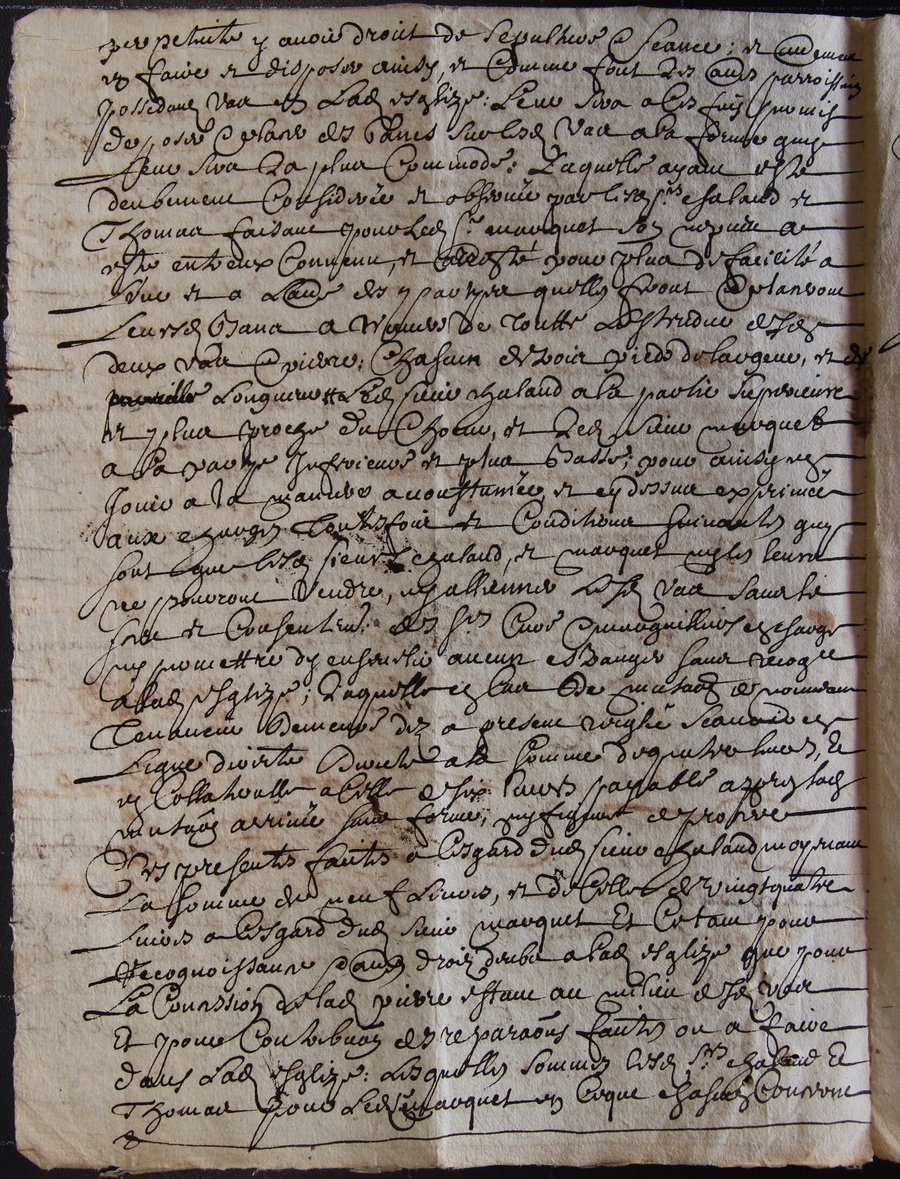 perpetuité y avoir droit de sepulture & seance; et
en faire et disposer ainsy, et comme font les parroissiens
possedans vas en lad esglize: leur sera a ces fins promis
de poser & placer des bancs sur lesd vas a la forme quy
leur sera la plus commode: laquelle ayant esté
deubement considerée et observée par lesd srs chaland et
Thomas faisant pour led sr marquet son a
esté entr eux convenu, et arresté pour plus de facilité a
l'une et a l'autre des parties quelles feront
leursd bancs a de toutte l'estendue desd
deux vas & pierre; chascun de trois pieds de largeur, et de
longueur led sieur chaland a la partie superieure
et plus proche du choeur, et led sieur marquet
a la partie inferieure et plus basse; pour ainsy en
jouir a la maniere accoustumée et cy dessus exprimée
aux charges touttesfois et conditions suivantes quy
sont que lesd sieurs chaland, et marquet ny les leurs
ne pourront vendre, ny alliener lesd vas sans le
sceu et consentemt des srs curé & marguilliers en charge
ny promettre dy ensevelir aucun estranger sans
a lad esglize; laquelle en cas de mutaon de nouveau
tenancier demeure dez a present reiglée scavoir en
ligne directe a la somme de quatre livres, et
en collateralle a celle de six livres payable apres lad
mutaon arrivée sans forme, ny figure de proces
les presentes faites a lesgard dud sieur chaland moyenant
la somme de neuf livres, et de celle de vingt quatre
livres a lesgard dud sieur marquet et ce tant pour
recognoissance droit deub a lad esglize que pour
la concession de lad pierre estant au milieu desd vas
et pour contribuon des reparaons faites ou a faire
dans lad esglize: lesquelles sommes lesd srs chaland et
Thomas pour led sr marquet